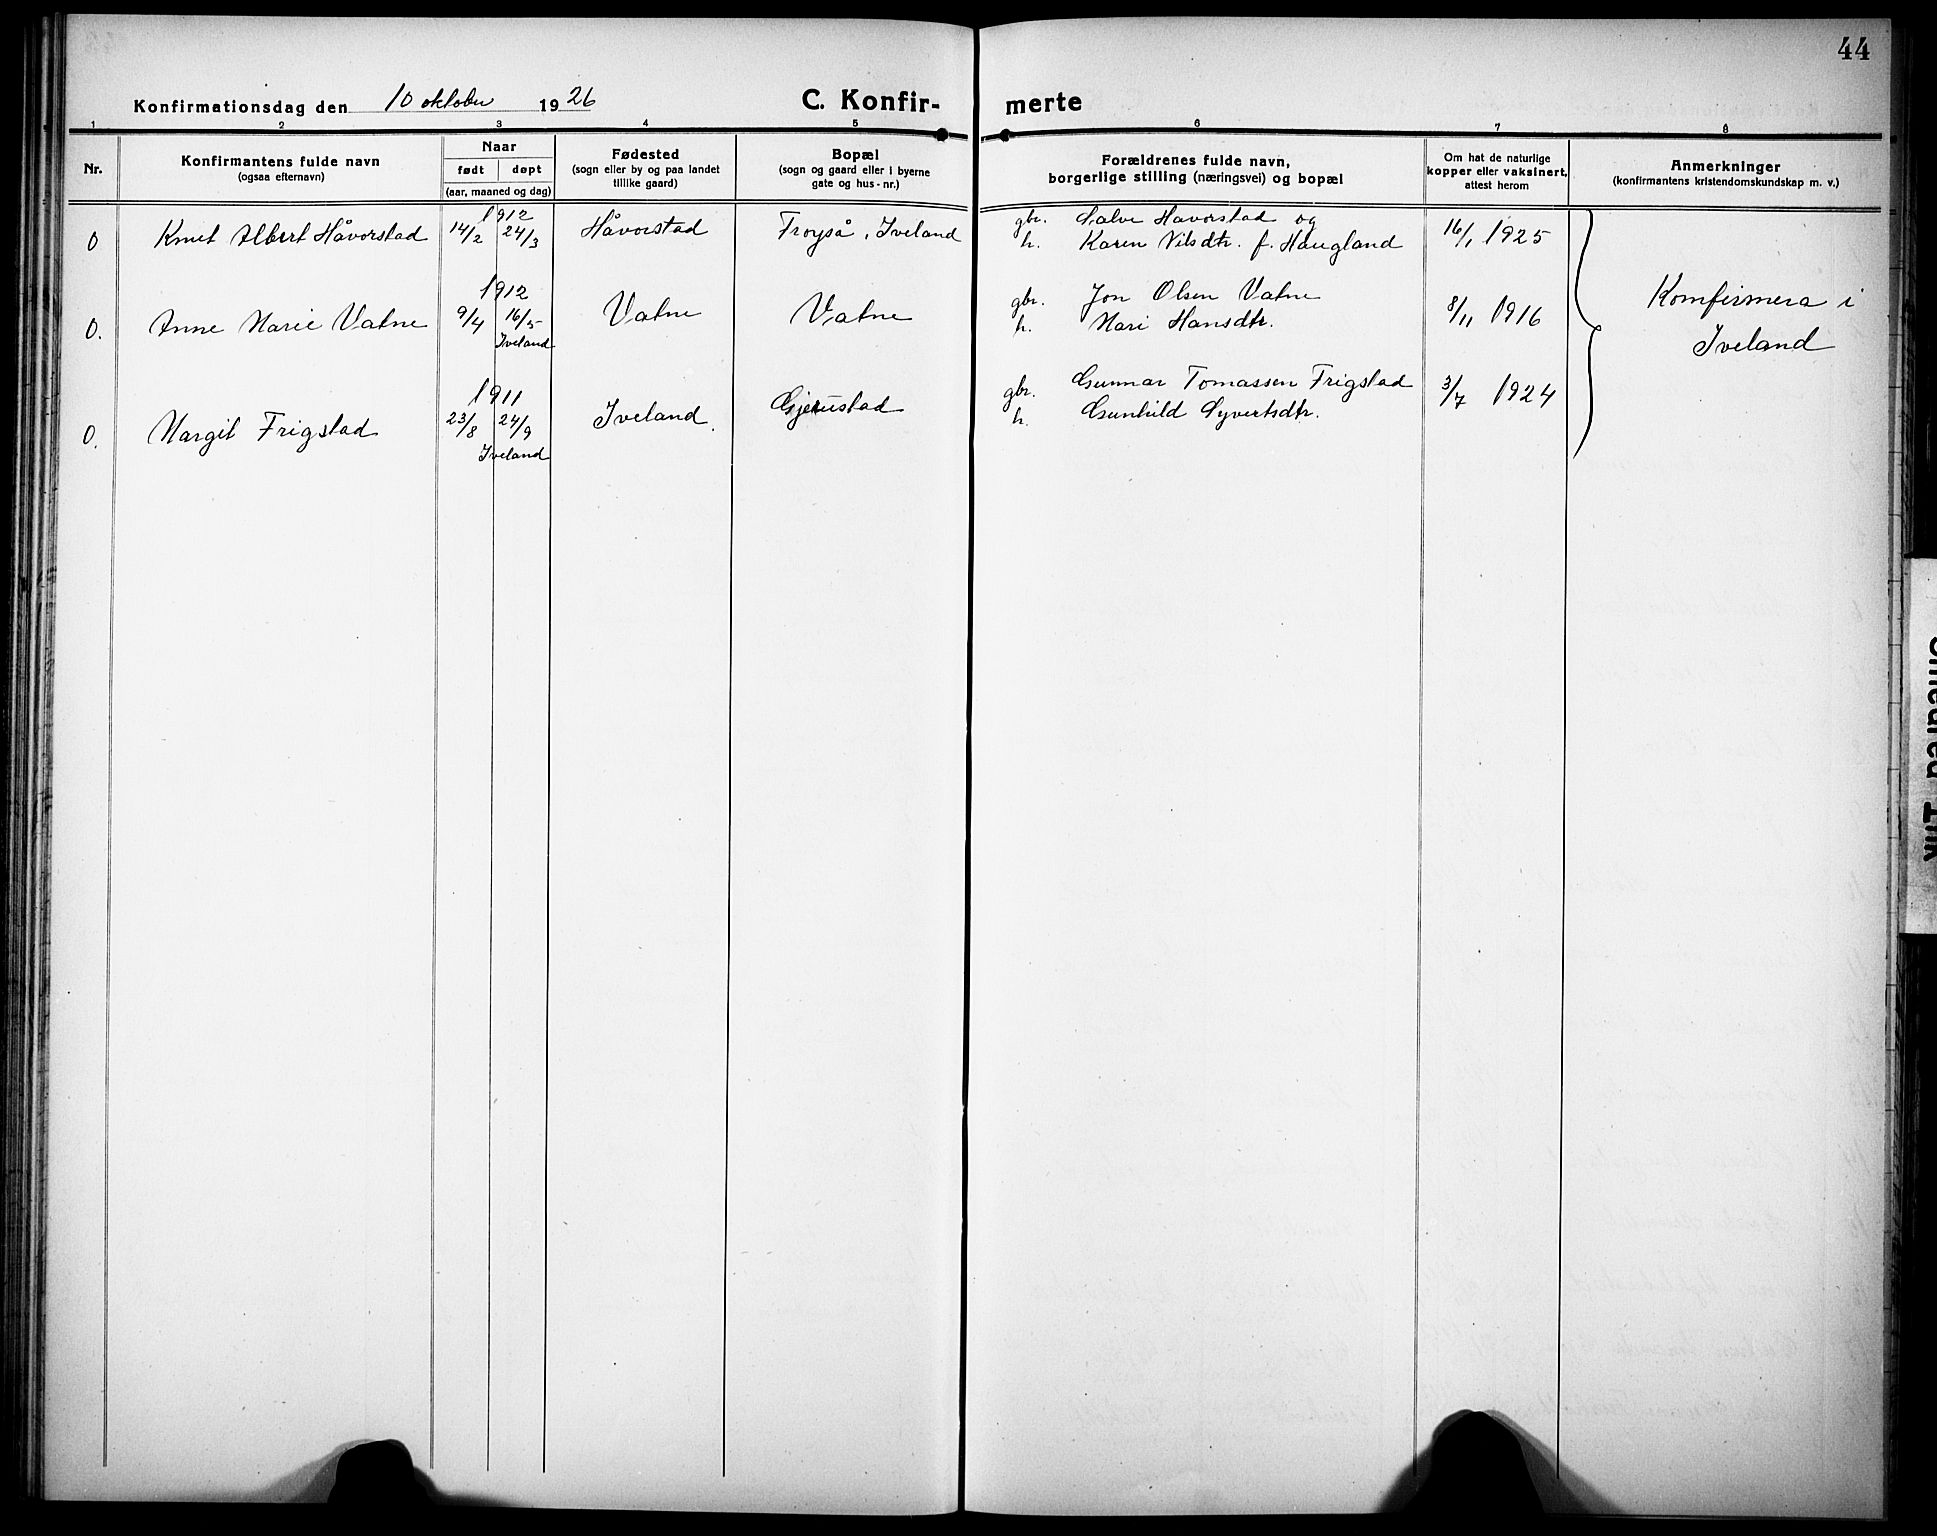 44
Konfirmationsdag den 10 oktober 1926
C. Konfir-
merte
1 2 3 4 5 6 7 8
Nr.
Konfirmantens fulde navn
(ogsaa efternavn)
Naar
født døpt
(aar, maaned og dag)
Fødested
(sogn eller by og paa landet
tillike gaard)
Bopæl
(sogn og gaard eller i byerne
gate og hus-nr.)
Forældrenes fulde navn,
borgerlige stilling (næringsvei) og bopæl
Om hat de naturlige
kopper eller vaksinert,
attest herom
Anmerkninger
(konfirmantens kristendomskundskap m. v.)
1912
0 Knut Albert Håvorstad 14/2 24/3 Håvorstad Froyså, Iveland
gbr. Salve Havorstad og
h. Karen Nilsdtr. f. Haugland
16/1 1925
1912
0. Anne Marie Vatne 9/4 16/5 Vatne Vatne
Iveland
gbr. Jon Olsen Vatne
h. Mari Hansdtr.
8/11 1916
Komfirmera i
Iveland
1911
0. Margit Frigstad 23/8 24/9 Iveland. Gjerustad
Iveland
gbr. Gunnar Tomassen Frigstad
h. Gunhild Syvertsdtr.
3/7 1924